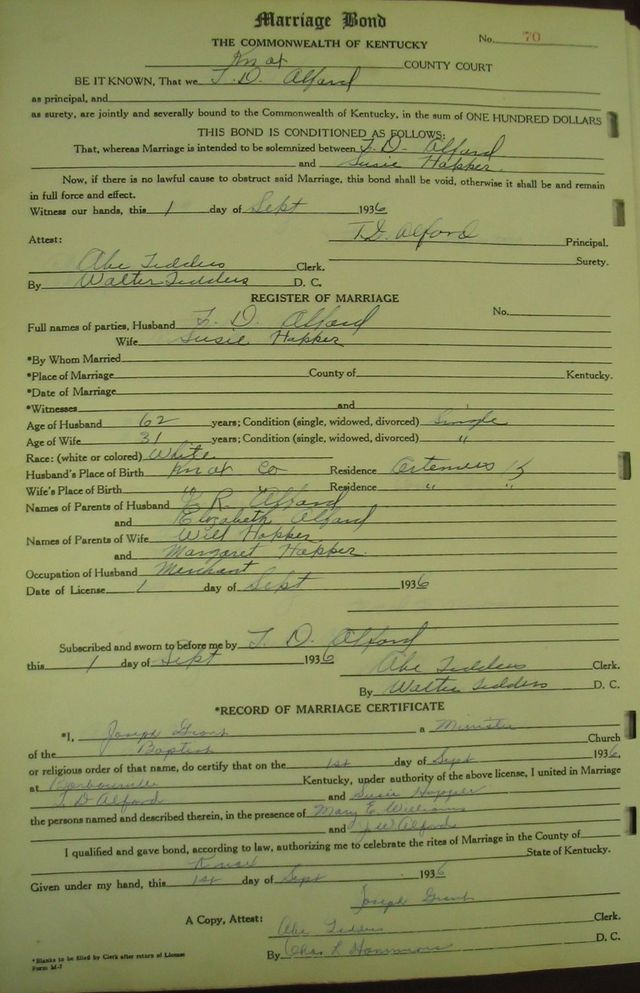 Marriage Bond
THE COMMONWEALTH OF KENTUCKY No. 70
Knox COUNTY COURT
BE IT KNOWN, That we T. D. Alford
as principal, and
as surety, are jointly and severally bound to the Commonwealth of Kentucky, in the sum of ONE HUNDRED DOLLARS
THIS BOND IS CONDITIONED AS FOLLOWS:
That, whereas Marriage is intended to be solemnized between T. D. Alford
and Susie Hopper
Now, if there is no lawful cause to obstruct said Marriage, this bond shall be void, otherwise it shall be and remain
in full force and effect.
Witness our hands, this 1 day of Sept 1936
Attest: T. D. Alford Principal.
Abe Tedders Clerk. Surety.
By Walter Tedders D. C.
REGISTER OF MARRIAGE
Full names of parties, Husband T. D. Alford No.
Wife Susie Hopper
*By Whom Married
*Place of Marriage County of Kentucky.
*Date of Marriage
*Witnesses and
Age of Husband 62 years; Condition (single, widowed, divorced) Single
Age of Wife 31 years; Condition (single, widowed, divorced) "
Race: (white or colored) White
Husband's Place of Birth Knox Co Residence Artemus Ky
Wife's Place of Birth " " Residence " "
Names of Parents of Husband R. Alford
and Elizabeth Alford
Names of Parents of Wife Will Hopper
and Margaret Hopper
Occupation of Husband Merchant
Date of License 1 day of Sept 1936
Subscribed and sworn to before me by T. D. Alford
this 1 day of Sept 1936 Abe Tedders Clerk.
By Walter Tedders D. C.
*RECORD OF MARRIAGE CERTIFICATE
*I, Joseph Grant a Minister
of the Baptist Church
or religious order of that name, do certify that on the 1st day of Sept 1936,
at Barbourville Kentucky, under authority of the above license, I united in Marriage
T D Alford and Susie Hopper
the persons named and described therein, in the presence of Mary E. Williams
and J W Alford
I qualified and gave bond, according to law, authorizing me to celebrate the rites of Marriage in the County of
Knox State of Kentucky.
Given under my hand, this 1st day of Sept 1936
Joseph Grant
A Copy, Attest: Abe Tedders Clerk.
By Chas L Hammons D. C.
*Blanks to be filled by Clerk after return of License
Form M-7